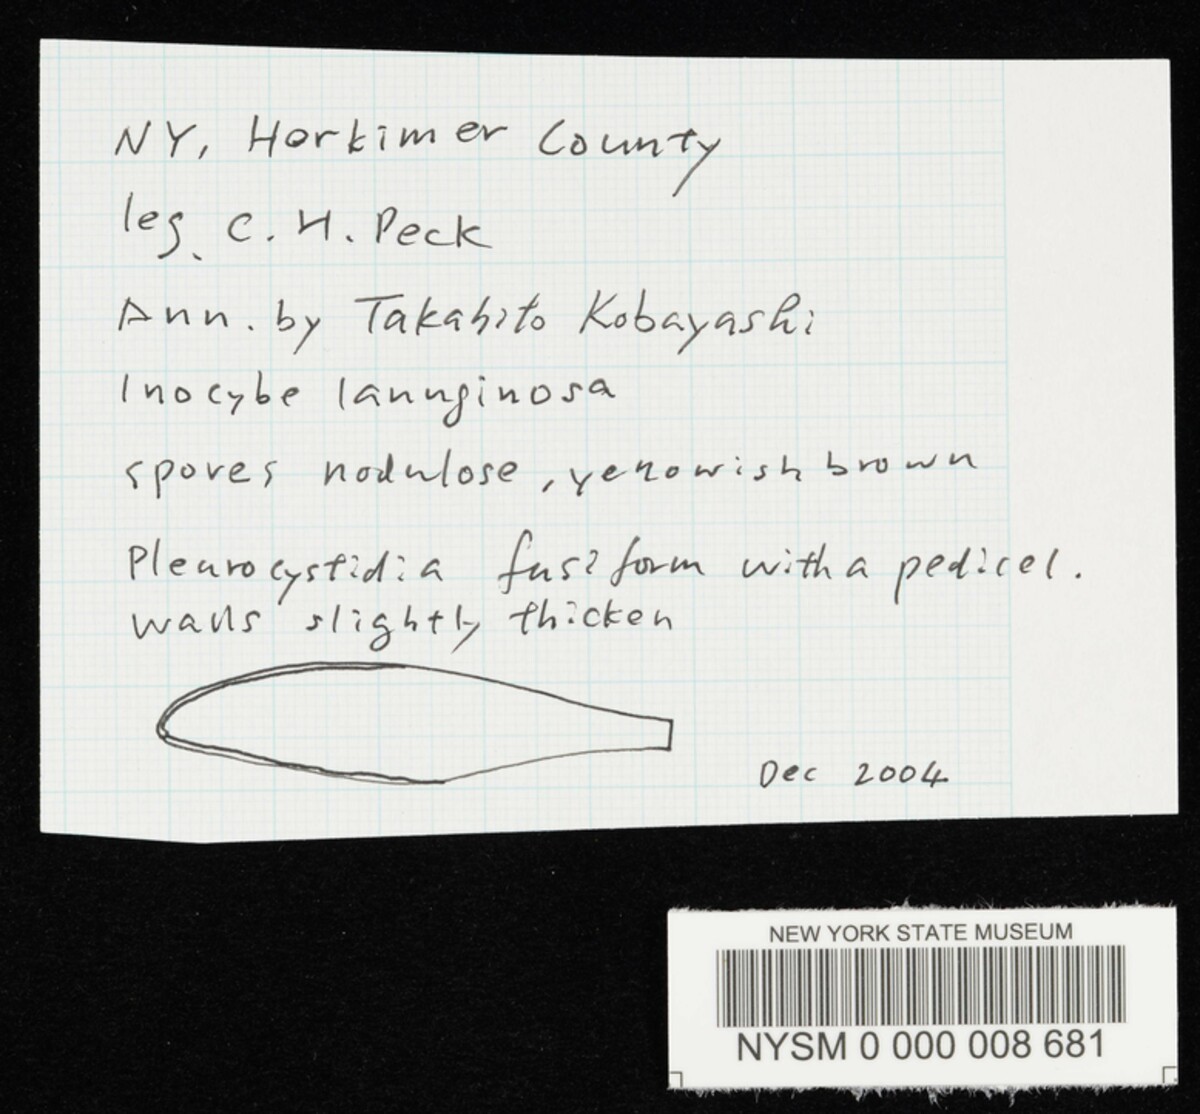 NY, Herkimer County
leg. C. H. Peck
Ann. by Takahito Kobayashi
Inocybe lanuginosa
spores nodulose, yellowish brown
Pleurocystidia fusiform with a pedicel.
walls slightly thicken
Dec 2004
NEW YORK STATE MUSEUM
NYSM 0 000 008 681